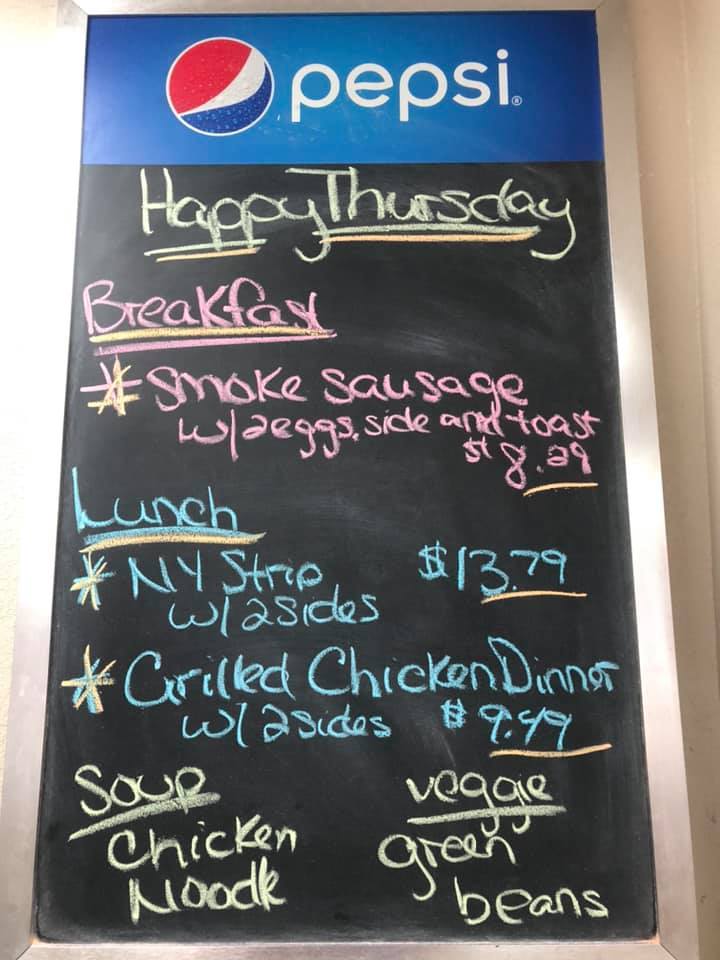 pepsi®
Happy Thursday
Breakfast
* Smoke Sausage
w/2eggs, side and toast
$8.29
Lunch
* NY Strip $13.79
w/2sides
* Grilled Chicken Dinner
w/2sides $9.49
Soup
Chicken
Noodle
veggie
green
beans